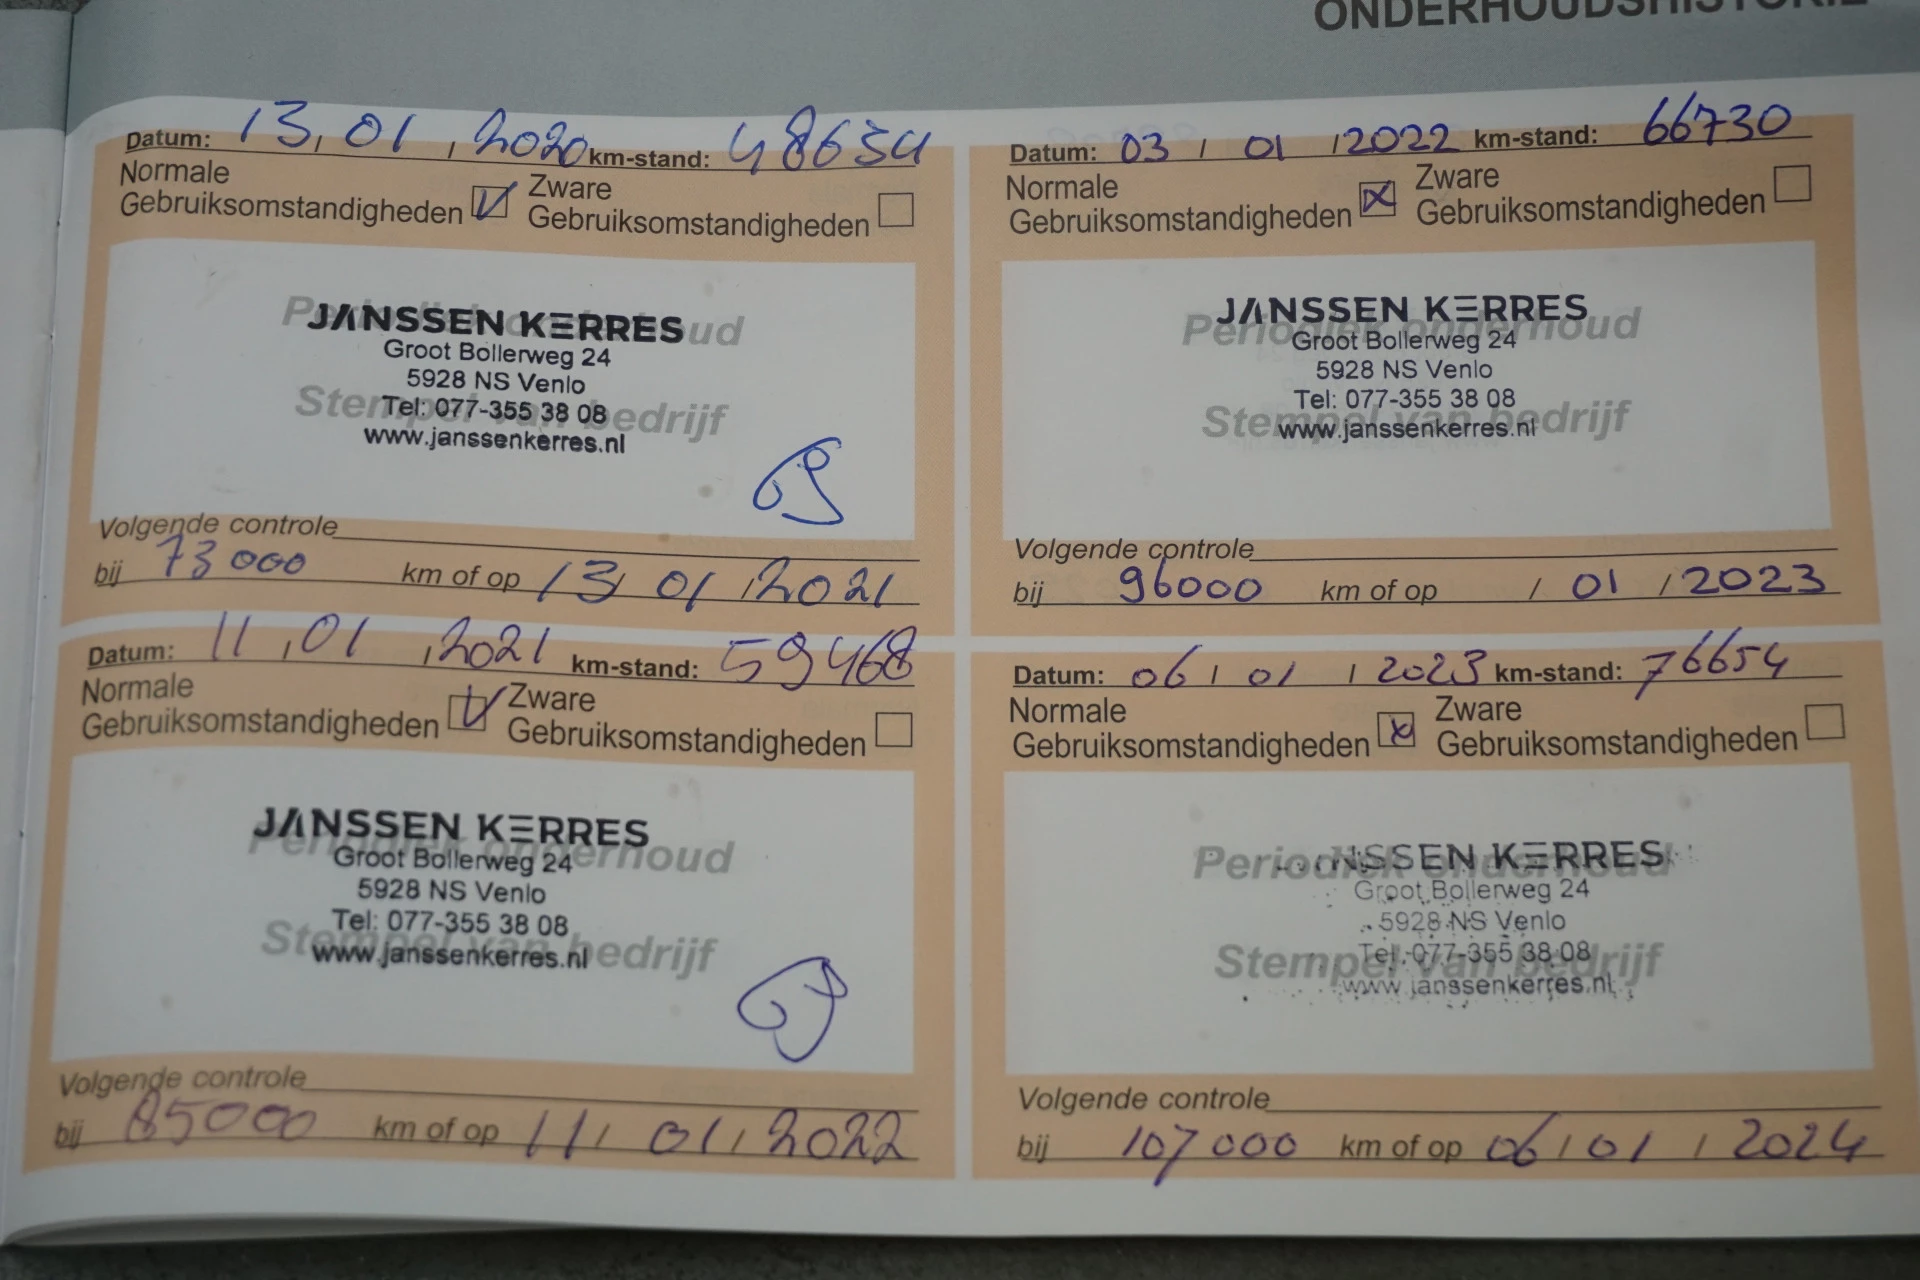 ONDERHOUDSHISTORIE
Datum: 13, 01, 2020 km-stand: 48634
Normale Gebruiksomstandigheden V Zware Gebruiksomstandigheden
Periodiek onderhoud
Stempel van bedrijf
JANSSEN KERRES
Groot Bollerweg 24
5928 NS Venlo
Tel: 077-355 38 08
www.janssenkerres.nl
Volgende controle
bij 73000 km of op 13/01/2021
Datum: 11, 01, 2021 km-stand: 59468
Normale Gebruiksomstandigheden V Zware Gebruiksomstandigheden
Periodiek onderhoud
Stempel van bedrijf
JANSSEN KERRES
Groot Bollerweg 24
5928 NS Venlo
Tel: 077-355 38 08
www.janssenkerres.nl
Volgende controle
bij 85000 km of op 11/01/2022
Datum: 03 / 01 / 2022 km-stand: 66730
Normale Gebruiksomstandigheden x Zware Gebruiksomstandigheden
Periodiek onderhoud
Stempel van bedrijf
JANSSEN KERRES
Groot Bollerweg 24
5928 NS Venlo
Tel: 077-355 38 08
www.janssenkerres.nl
Volgende controle
bij 96000 km of op / 01 / 2023
Datum: 06 / 01 / 2023 km-stand: 76654
Normale Gebruiksomstandigheden x Zware Gebruiksomstandigheden
Periodiek onderhoud
Stempel van bedrijf
JANSSEN KERRES
Groot Bollerweg 24
5928 NS Venlo
Tel: 077-355 38 08
www.janssenkerres.nl
Volgende controle
bij 107000 km of op 06 / 01 / 2024